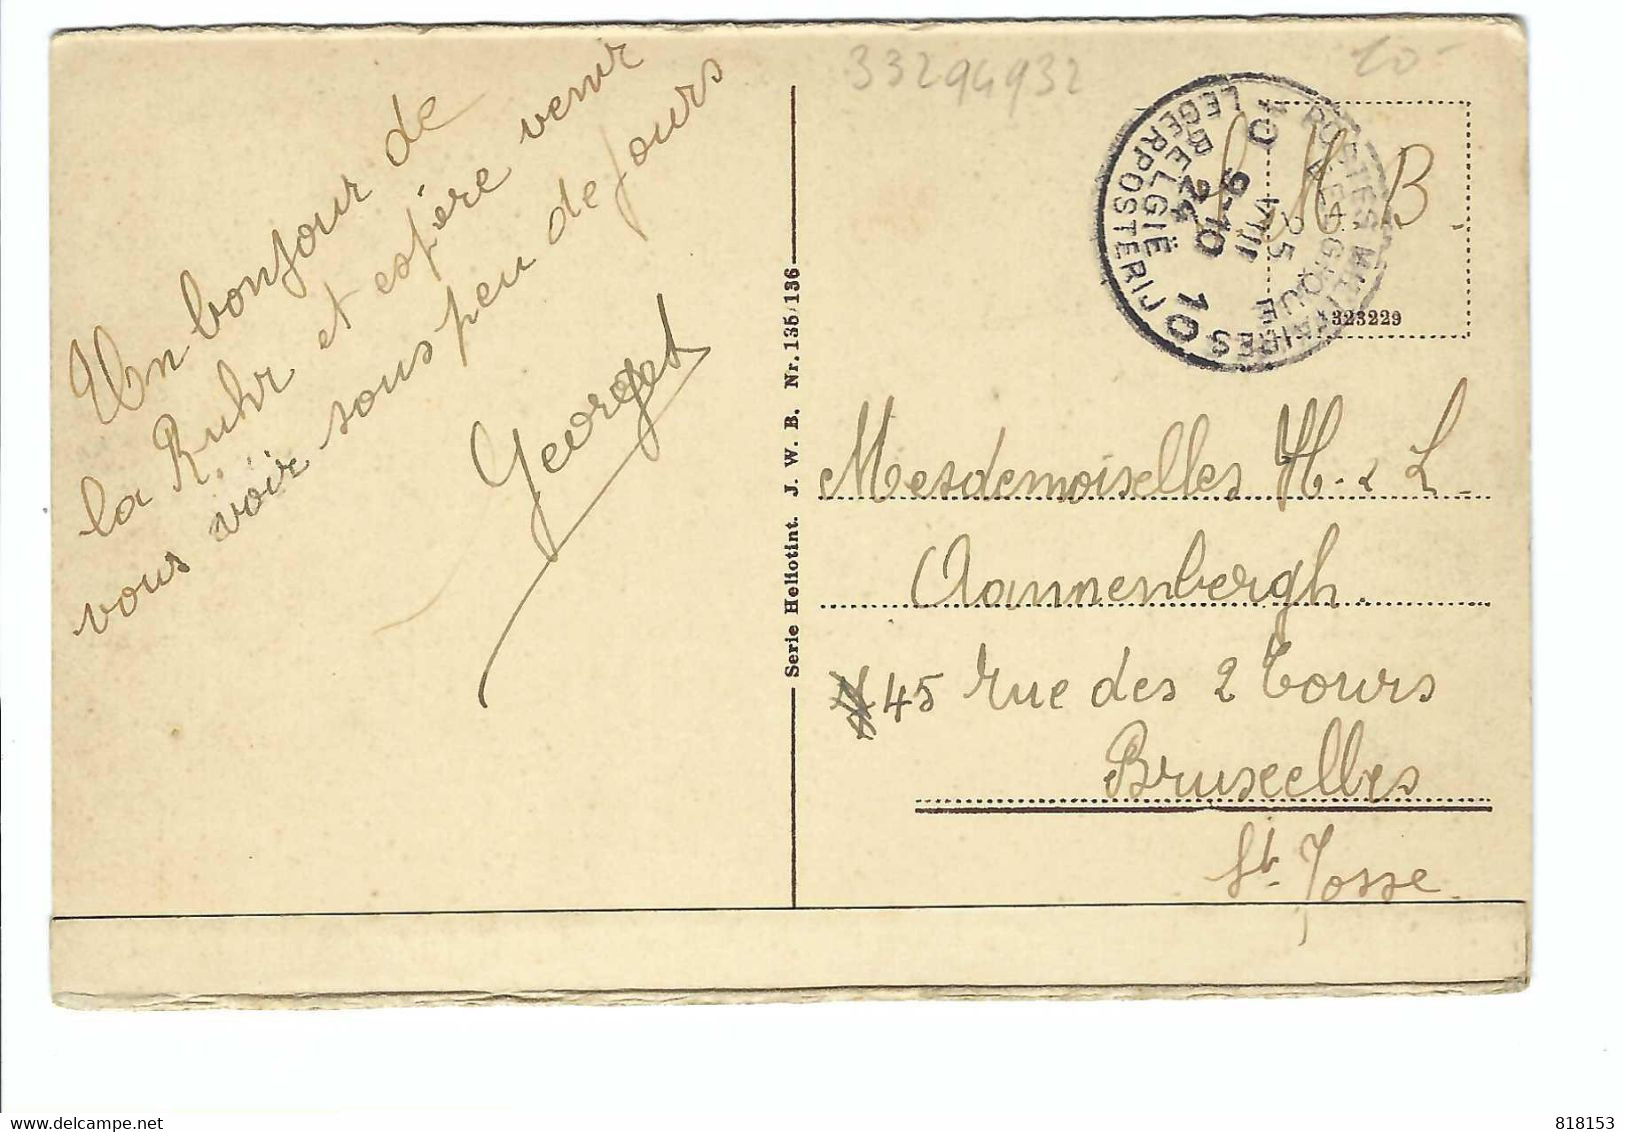 Un bonjour de
la Ruhr et espère venir
vous voir sous peu de jours
Georges
Serie Heliotint. J. W. B. Nr. 135/136
33294932
10-
POSTES MILITAIRES
BELGIQUE
BELGIË
LEGERPOSTERIJ
10
10
9-10
24
S. M. B.
323229
Mesdemoiselles H. & L.
Aannenbergh.
45 rue des 2 Tours
Bruxelles
St. Josse
818153